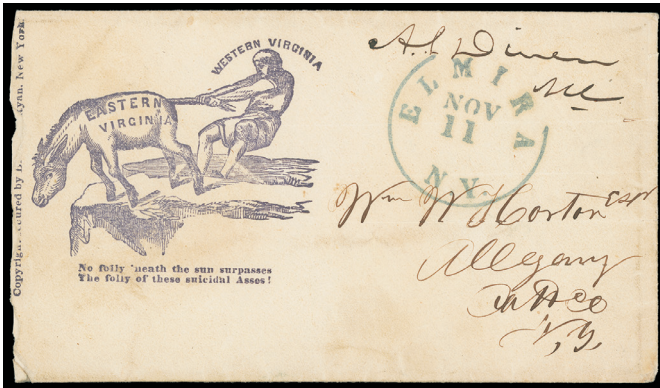 Copyright secured by yan, New York
WESTERN VIRGINIA
EASTERN
VIRGINIA
No folly 'neath the sun surpasses
The folly of these suicidal Asses!
ELMIRA
NOV
11
N.Y.
Wm W Horton Esqr
Allegany
Catt Co
N.Y.